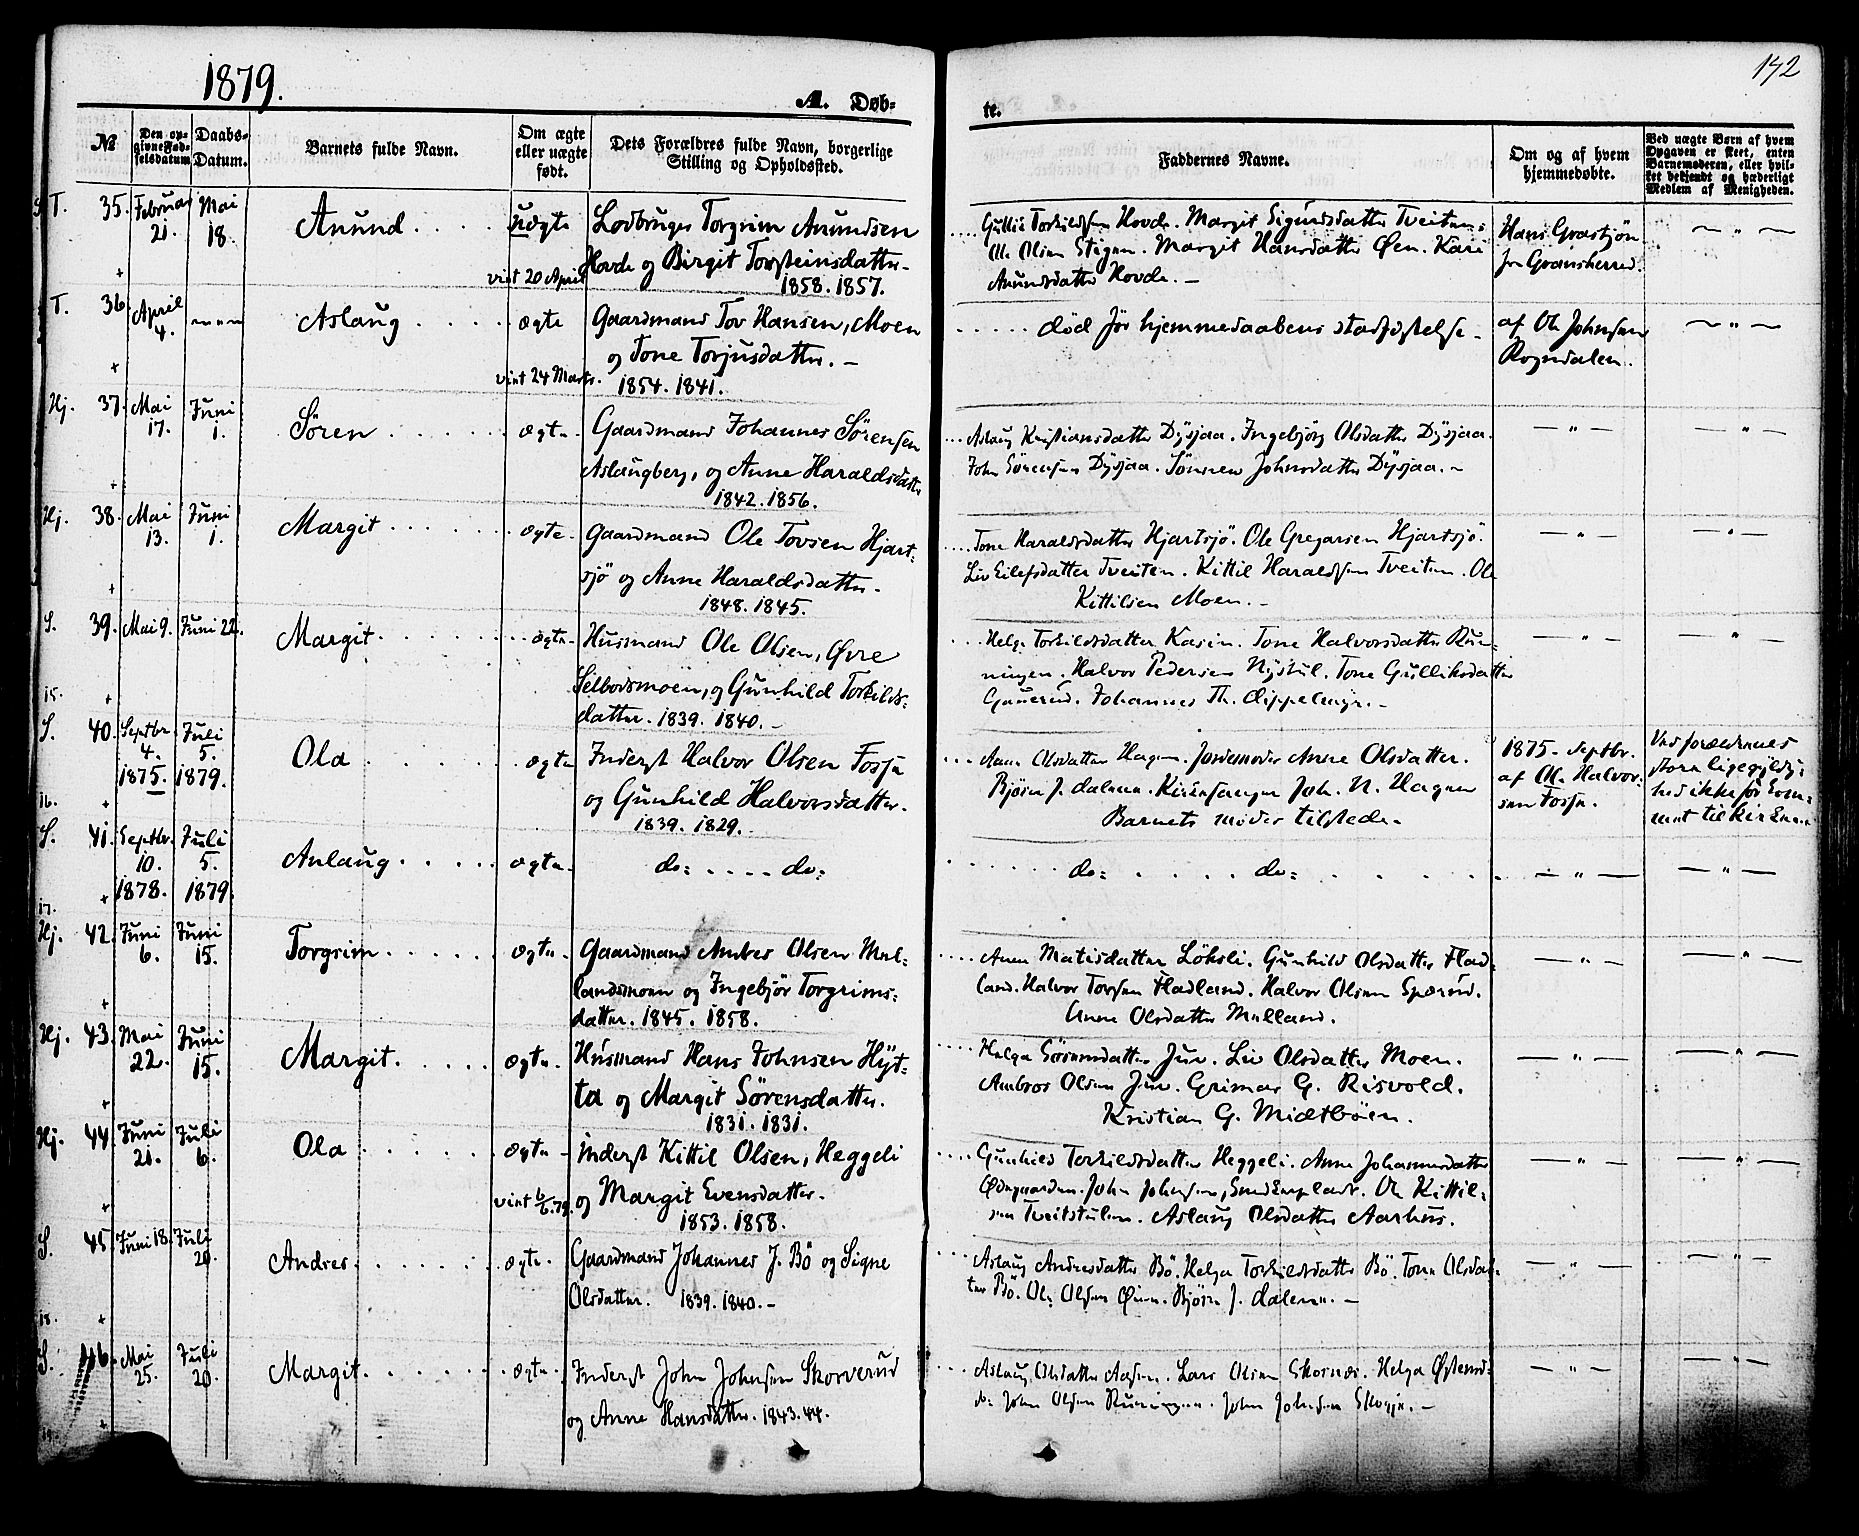 1879.
142
A. Døb-
te.
№
Den op-
givne Fød-
selsdatum
Daabs-
Datum.
Barnets fulde Navn.
Om ægte
eller uægte
født.
Dets Forældres fulde Navn, borgerlige
Stilling og Opholdssted.
Faddernes Navne.
Om og af hvem
hjemmedøbte.
Ved uægte Børn af hvem
Opgaven er skeet, enten
Barnemoderen, eller hvil-
ket bekjendt og hæderligt
Medlem af Menigheden.
T. 35. Februar Mai
21. 18.
Anund
uægte
vint 20 April
Lodbruger Torgrim Anundsen
Hovde og Birgit Torsteinsdatter.
1858. 1857.
Torkildsen Hovde. Margit Sigurdsdatter Tveiten.
Ole Olsen Stigen. Margit Hansdatter Øen. Kari
Anundsdatter Hovde. -
Hans Grøstjøn
fra Gransherred.
— " —
T. 36. April
4. " " "
Aslaug
ægte
vint 24 Marts.
Gaardmand Tov Hansen, Moen
og Tone Torjusdatter. -
1854. 1841.
død før hjemmedaabens stadfæstelse -
af Ole Johnsen
Rogndalen.
— " —
Hj. 37. Mai Juni
17. 1.
Søren
ægte.
Gaardmand Johannes Sørensen
Aslaugberg, og Anne Haraldsdatter
1842. 1856.
Aslaug Kristiansdatter Dysjaa. Ingebjørg Olsdatter Dysjaa.
John Sørensen Dysjaa. Sønnev Johnsdatter Dysjaa. -
— " —
— " —
Hj. 38. Mai Juni
13. 1.
Margit
ægte.
Gaardmand Ole Tovsen Hjart-
sjø og Anne Haraldsdatter.
1848. 1845.
Tone Haraldsdatter Hjartsjø. Ole Gregarsen Hjartsjø.
Liv Eilefsdatter Tveiten. Kittil Haraldsen Tveiten. Ole
Kittilsen Moen. -
— " —
— " —
S. 39. Mai 9. Juni 22.
15.
Margit
ægte.
Husmand Ole Olsen, Øvre
Selbodsmoen, og Gunhild Torkilds-
datter. 1839. 1840. -
Helge Torkildsdatter Kasin. Tone Halvorsdatter Run-
ningen. Halvor Pedersen Nystul. Tone Gulliksdatter
Gauerud. Johannes Th. Lippelmyr. -
— " —
— " —
S. 40. Septbr. Juli
4. 5.
1875 1879.
16.
Ola
ægte
Inderst Halvor Olsen Fosse
og Gunhild Halvorsdatter.
1839. 1829.
Anne Olsdatter Hagen. Jordemoder Anne Olsdatter.
Bjørn J. Dalene. Kirkesanger Joh. N. Hagen
Barnets moder tilstede. -
1875. Septbr.
af Ole Halvor-
sen Fosse.
Ved forældrenes
store ligegyldig-
hed ikke før kom-
met til kirken.
S. 41. Septbr. Juli
10. 5.
1878. 1879.
17.
Anlaug
ægte.
do: . . . . do:
do: . . . . do:
— " —
— " —
Hj. 42. Juni Juni
6. 15.
Torgrim
ægte.
Gaardmand Anders Olsen Mul-
landsmoen og Ingebjør Torgrims-
datter. 1845. 1858.
Anne Matisdatter Løksli. Gunhild Olsdatter Flad-
land. Halvor Torsen Fladland. Halvor Olsen Sperud.
Anne Olsdatter Mulland.
— " —
— " —
Hj. 43. Mai Juni
22. 15.
Margit
ægte.
Husmand Hans Johnsen Hyt-
ta og Margit Sørensdatter.
1831. 1831.
Helga Sørensdatter Juv. Liv Olsdatter Moen.
Ambros Olsen Juv. Grimar G. Risvold.
Kristian G. Midtbøen.
— " —
— " —
Hj. 44. Juni Juli
21. 6.
Ola
ægte
vint 6/6. 79.
inderst Kittil Olsen, Heggeli
og Margit Evensdatter.
1853. 1858.
Gunhild Torkildsdatter Heggeli. Anne Johannesdatter
Ødegaarden. John Johnsen, Ole Kittil-
sen Tveitstulen. Aslaug Olsdatter Aarhus.
— " —
— " —
S. 45. Juni 18. Juli
20.
18.
Andres
ægte.
Gaardmand Johannes J. Bø og Signe
Olsdatter. 1839. 1840. -
Aslaug Andresdatter Bø. Helga Torkildsdatter Bø. Tone Olsdat-
ter Bø. Ole Olsen Øien. Bjørn J. Dalene. -
— " —
— " —
S. 46. Mai Juli
25. 20.
19.
Margit
ægte
Inderst John Johnsen Skorverud
og Anne Hansdatter. 1843. 44.
Aslaug Olsdatter Aasen. Lars Olsen Skornæs. Helga
do: John Olsen Runningen. John Johnsen Skogje. -
— " —
— " —